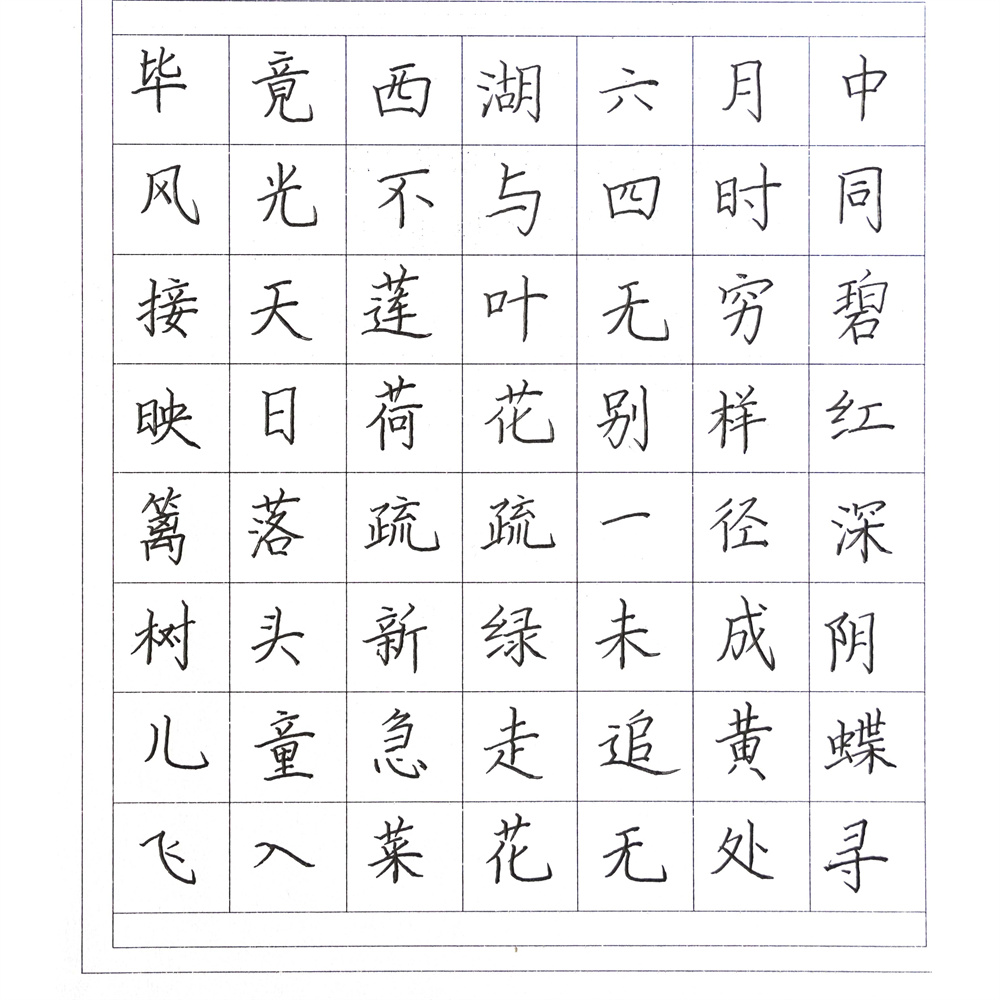 毕竟西湖六月中
风光不与四时同
接天莲叶无穷碧
映日荷花别样红
篱落疏疏一径深
树头新绿未成阴
儿童急走追黄蝶
飞入菜花无处寻